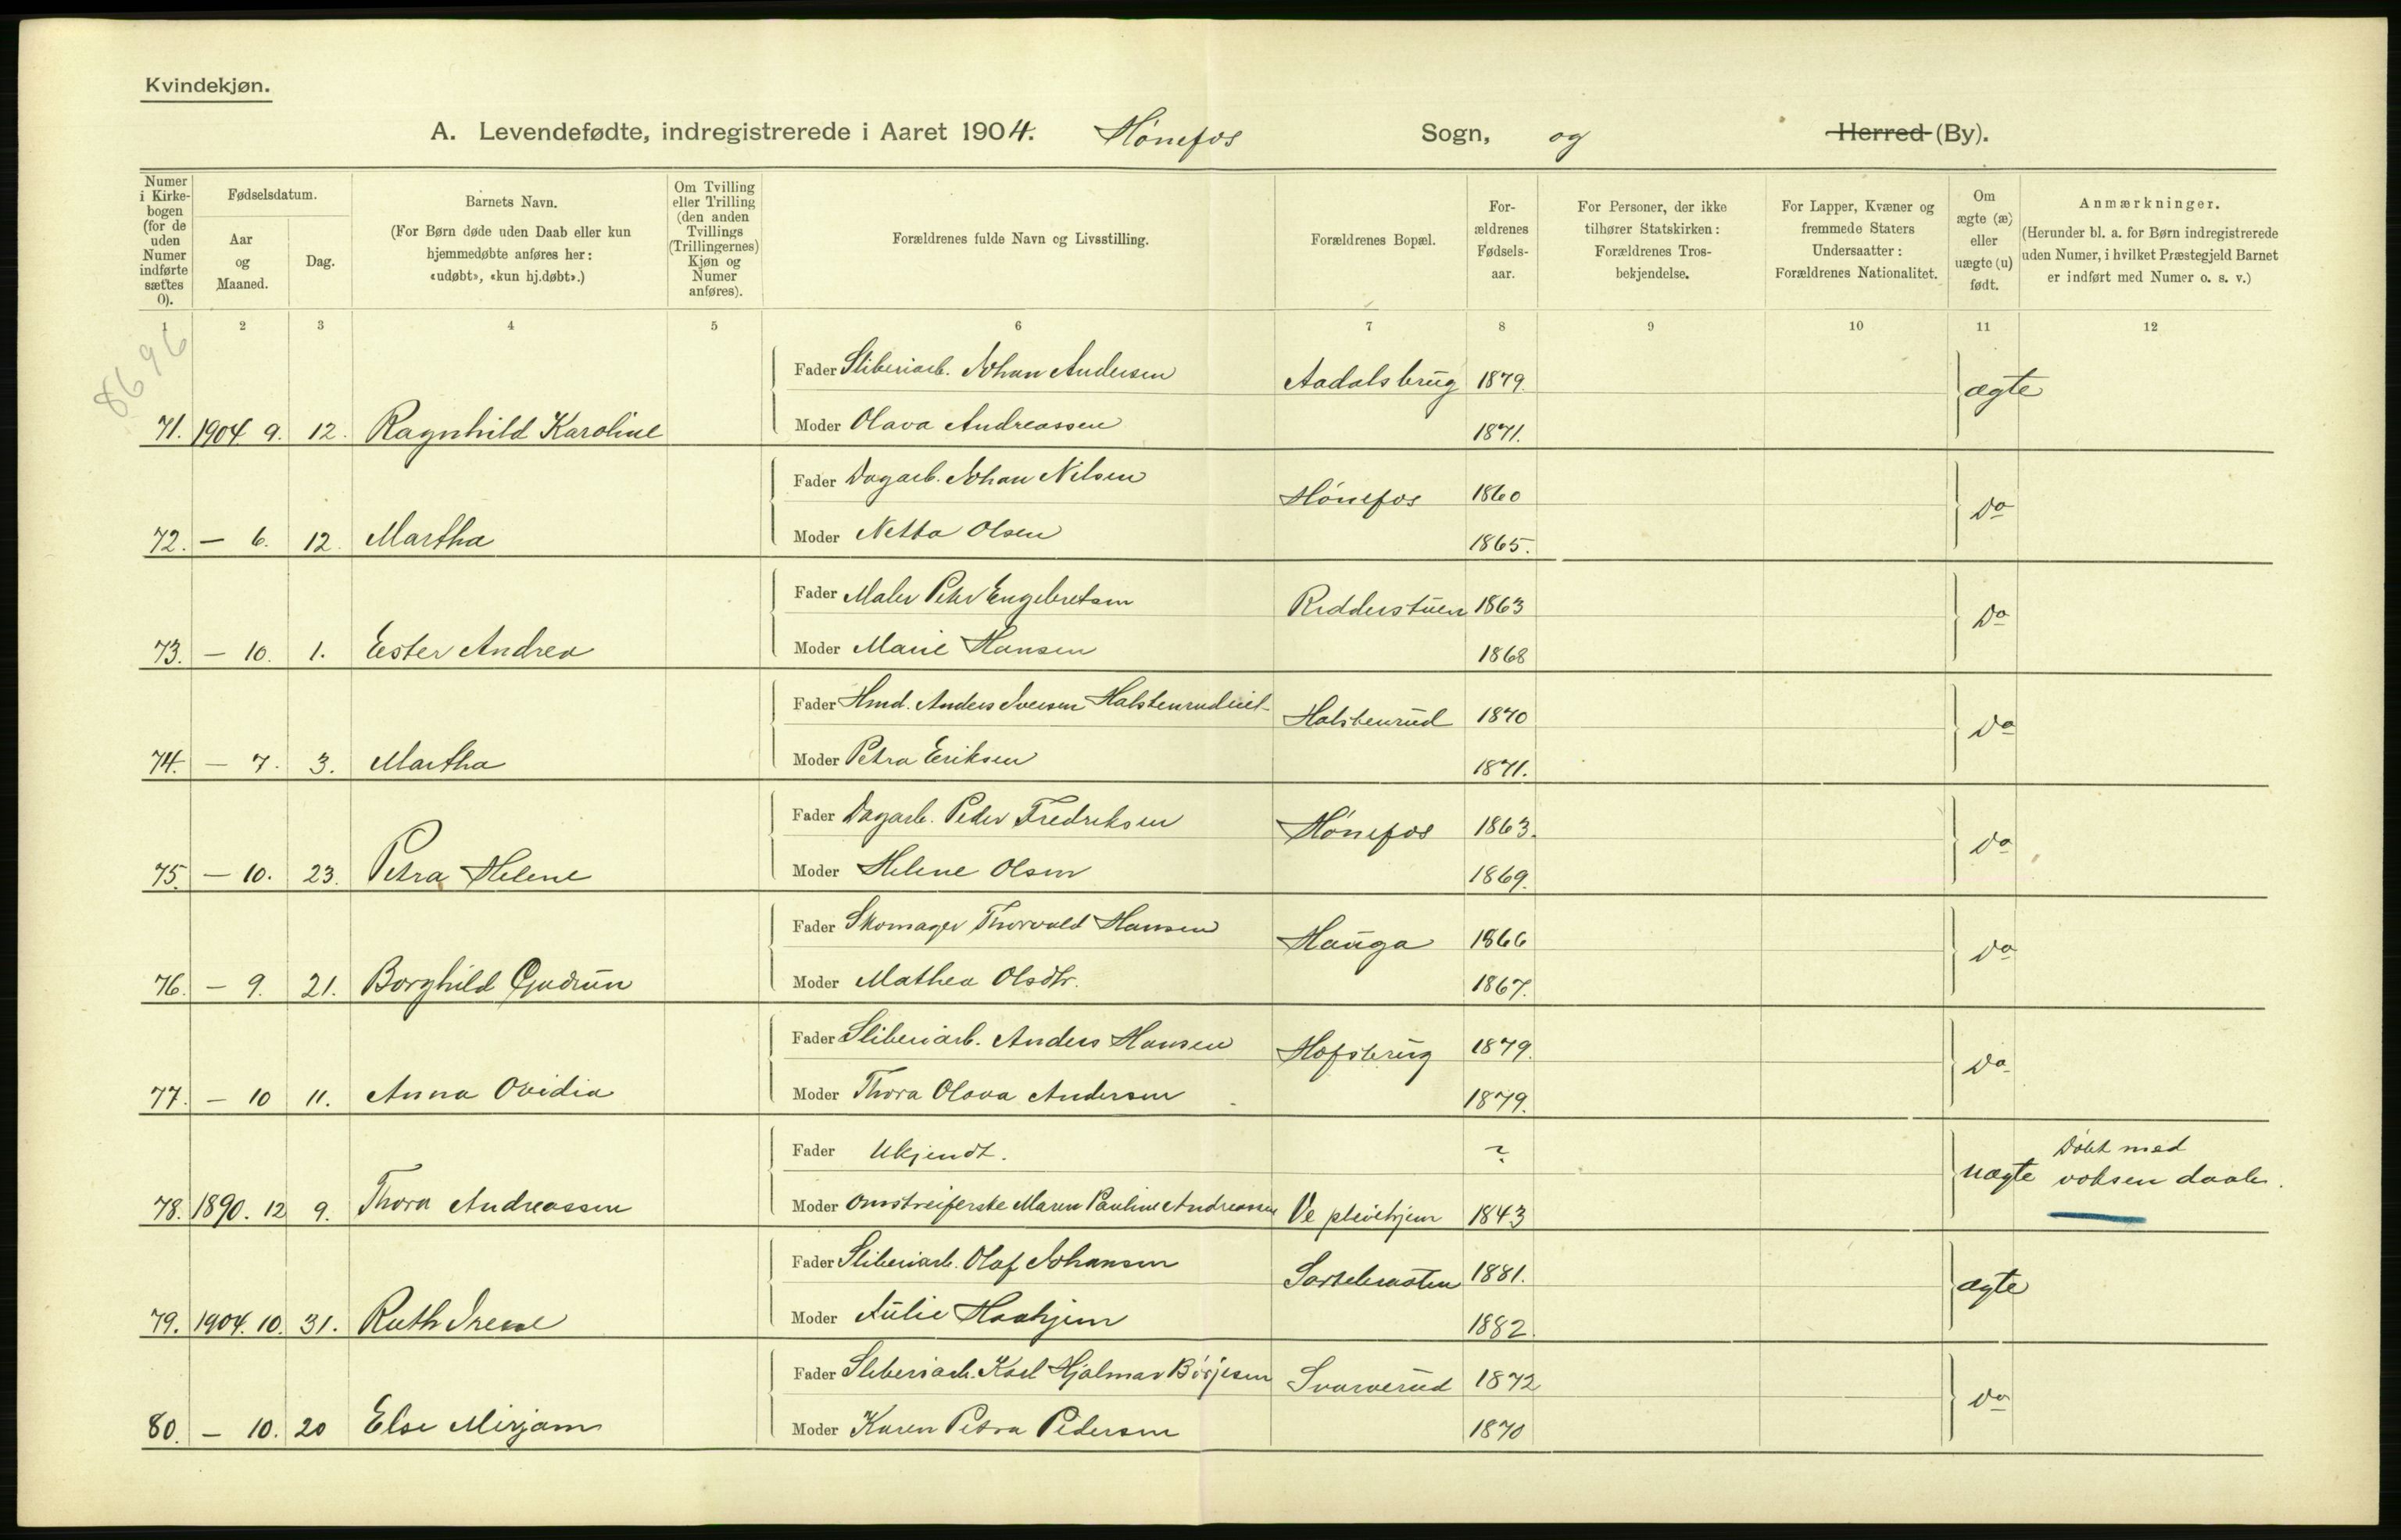 Kvindekjøn.
A. Levendefødte, indregistrerede i Aaret 1904. Hønefos Sogn, og Herred (By).
Numer i Kirkebogen (for de uden Numer indførte sættes 0).
Fødselsdatum.
Aar og Maaned.
Dag.
Barnets Navn.
(For Børn døde uden Daab eller kun hjemmedøbte anføres her: «udøbt», «kun hj.døbt».)
Om Tvilling eller Trilling (den anden Tvillings (Trillingernes) Kjøn og Numer anføres).
Forældrenes fulde Navn og Livsstilling.
Forældrenes Bopæl.
Forældrenes Fødselsaar.
For Personer, der ikke tilhører Statskirken: Forældrenes Trosbekjendelse.
For Lapper, Kvæner og fremmede Staters Undersaatter: Forældrenes Nationalitet.
Om ægte (æ) eller uægte (u) født.
Anmærkninger.
(Herunder bl. a. for Børn indregistrerede uden Numer, i hvilket Præstegjeld Barnet er indført med Numer o. s. v.)
1 2 3 4 5 6 7 8 9 10 11 12
8696
Fader Sliberiarb. Johan Andersen Aadalsbrug 1879. ægte
71. 1904 9. 12. Ragnhild Karoline Moder Olava Andreassen 1871.
Fader Dagarb. Johan Nilsen Hønefos 1860 Do
72. — 6. 12. Martha Moder Netta Olsen 1865.
Fader Maler Peter Engebretsen Ridderstuen 1863 Do
73. — 10. 1. Ester Andrea Moder Marie Hansen 1868
Fader Hmd. Anders Iversen Halstenrudeiet Halstenrud 1870 Do
74. — 7. 3. Martha Moder Petra Eriksen 1871.
Fader Dagarb. Peder Fredriksen Hønefos 1863. Do
75. — 10. 23. Petra Helene Moder Helene Olsen 1869.
Fader Skomager Thorvald Hansen Hauga 1866 Do
76. — 9. 21. Borghild Gudrun Moder Mathea Olsdtr. 1867.
Fader Sliberiarb. Anders Hansen Hofsbrug 1879. Do
77. — 10 11. Anna Ovidia Moder Thora Olava Andersen 1879.
Fader Ukjendt. ? uægte Døbt med voksen daab.
78. 1890. 12 9. Thora Andreassen Moder Omstreiferske Maren Pauline Andreassen Ve pleiehjem 1843
Fader Sliberiarb. Olaf Johansen 1881. ægte
79. 1904. 10. 31. Ruth Irene Moder Julie Haahjem 1882.
Fader Sliberiarb. Karl Hjalmar Börjesen Svarverud 1872 Do
80. — 10. 20 Else Mirjam Moder Karen Petra Pedersen 1870